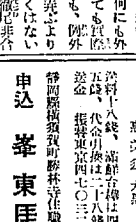 何にも外
ても實際
も、例外
来ぶより
くはない
徹尾非合
送料十八錢、滿鮮台樺は四
五錢、代金引換は二十八錢
送金 振替東京四七〇三三
靜岡縣橫須賀町勝林寺住職
申込 峯東臣